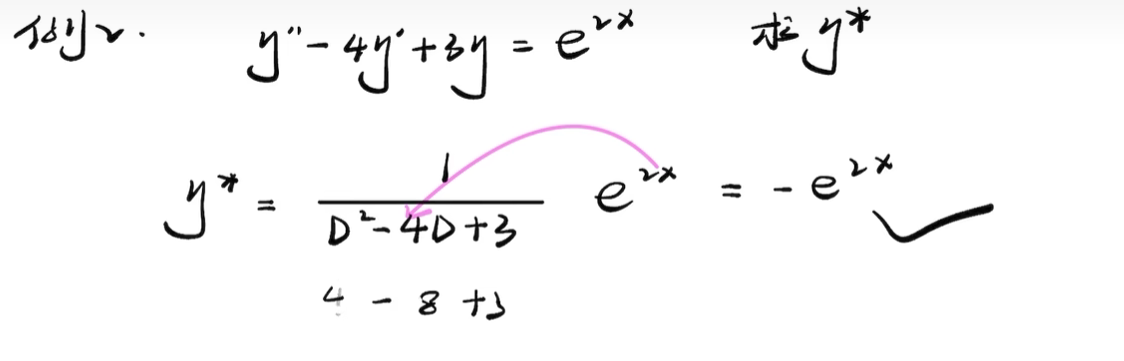 例2. y''-4y'+3y=e^{2x} 求 y*
y* = \frac{1}{D^2-4D+3} e^{2x} = -e^{2x}
4-8+3